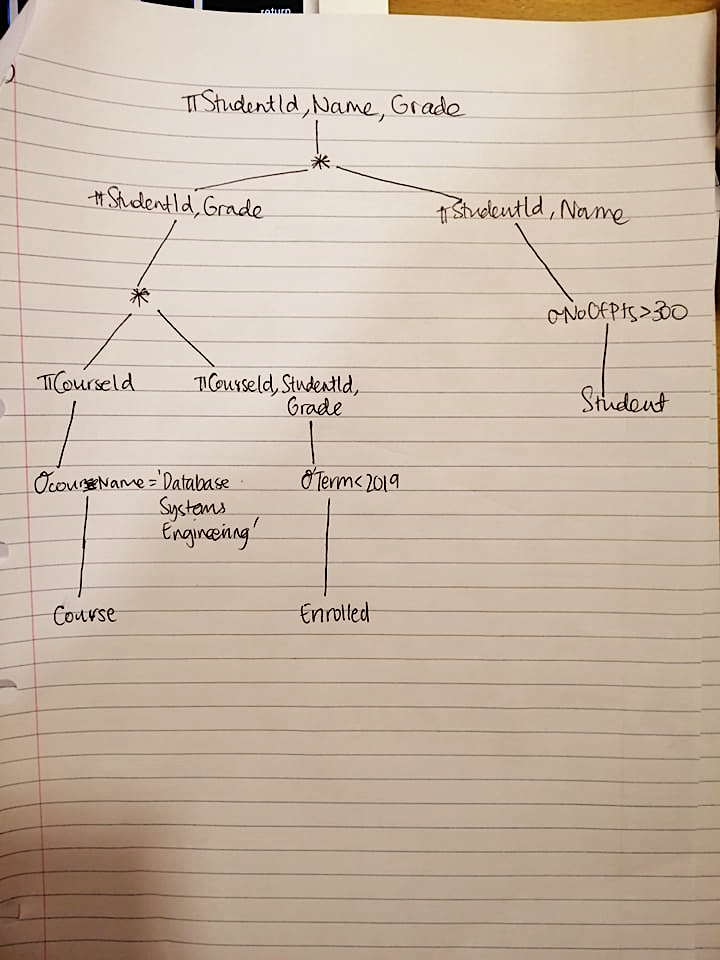 return
)
πStudentId, Name, Grade
*
πStudentId, Grade
πStudentId, Name
*
σNoOfPts>300
πCourseId
πCourseId, StudentId,
Grade
Student
σcourseName='Database
Systems
Engineering'
σTerm<2019
Course
Enrolled